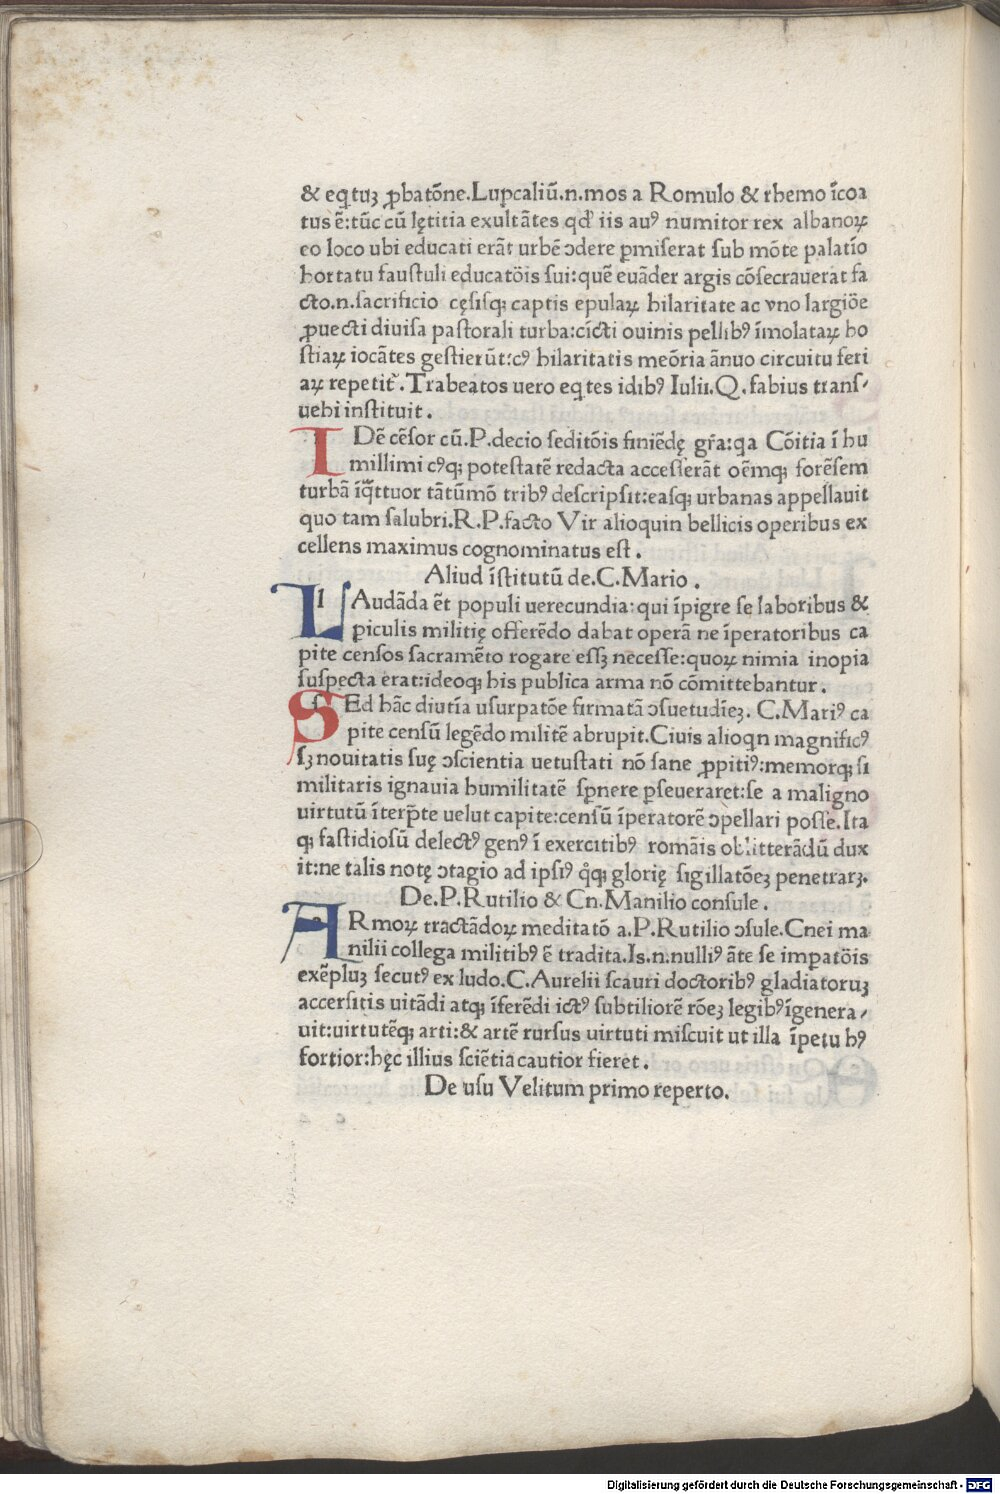 & eqtuꝫ ꝓbatõne.Lupcaliũ.n.mos a Romulo & rhemo ĩcoa
tus ẽ:tũc cũ lętitia exultãtes qd' iis auꝰ numitor rex albanoꝝ
eo loco ubi educati erãt urbẽ ↄdere ꝑmiserat sub mõte palatĩo
hortatu faustuli educatõis sui:quẽ euãder argis cõsecrauerat fa
cto.n.sacrificio cęsisqꝫ captis epulaꝝ hilaritate ac vno largiõe
ꝓuecti diuisa pastorali turba:cĩcti ouinis pellibꝰ ĩmolataꝝ ho
stiaꝝ iocãtes gestierũt:cꝰ hilaritatis meõria ãnuo circuitu feri
aꝝ repetit̃.Trabeatos uero eqtes idibꝰ Iulii.Q.fabius trans⸗
uehi instituit.
IDẽ cẽsor cũ.P.decio seditõis finiẽdę gr̃a:qa Cõitia ĩ hu
millimi cꝰqꝫ potestatẽ redacta accesserãt oẽmqꝫ forẽsem
turbã ĩq̃ttuor tãtũmõ tribꝰ descripsit:easqꝫ urbanas appellauit
quo tam salubri.R.P.facto Vir alioquin bellicis operibus ex
cellens maximus cognominatus est.
Aliud ĩstitutũ de.C.Mario.
LAudãda ẽt populi uerecundia:qui ĩpigre se laboribus &
ꝑiculis militię offerẽdo dabat operã ne ĩperatoribus ca
pite censos sacramẽto rogare essꝫ necesse:quoꝝ nimia inopia
suspecta erat:ideoqꝫ his publica arma nõ cõmittebantur.
SEd hãc diutĩa usurpatõe firmatã ↄsuetudĩeꝫ. C.Mariꝰ ca
pite censũ legẽdo militẽ abrupit.Ciuis alioqn magnificꝰ
sꝫ nouitatis suę ↄscientia uetustati nõ sane ꝓpitiꝰ:memorqꝫ si
militaris ignauia humilitatẽ sꝑnere ꝑseueraret:se a maligno
uirtutũ ĩterp̃te uelut capite:censũ ĩperatorẽ ↄpellari posse.Ita
qꝫ fastidiosũ delectꝰ genꝰ ĩ exercitibꝰ romãis oblitterãdũ dux
it:ne talis notę ↄtagio ad ipsiꝰ q̊qꝫ glorię sigillatõeꝫ penetrarꝫ.
De.P.Rutilio & Cn.Manilio consule.
ARmoꝝ tractãdoꝝ meditatõ a.P.Rutilio ↄsule.Cnei ma
nilii collega militibꝰ ẽ tradita.Is.n.nulliꝰ ãte se impatõis
exẽpluꝫ secutꝰ ex ludo.C.Aurelii scauri doctoribꝰ gladiatoruꝫ
accersitis uitãdi atqꝫ ĩferẽdi ictꝰ subtiliorẽ rõeꝫ legibꝰĩgenera⸗
uit:uirtutẽqꝫ arti:& artẽ rursus uirtuti miscuit ut illa ĩpetu hꝰ
fortior:hęc illius sciẽtia cautior fieret.
De usu Velitum primo reperto.
Digitalisierung gefördert durch die Deutsche Forschungsgemeinschaft - DFG